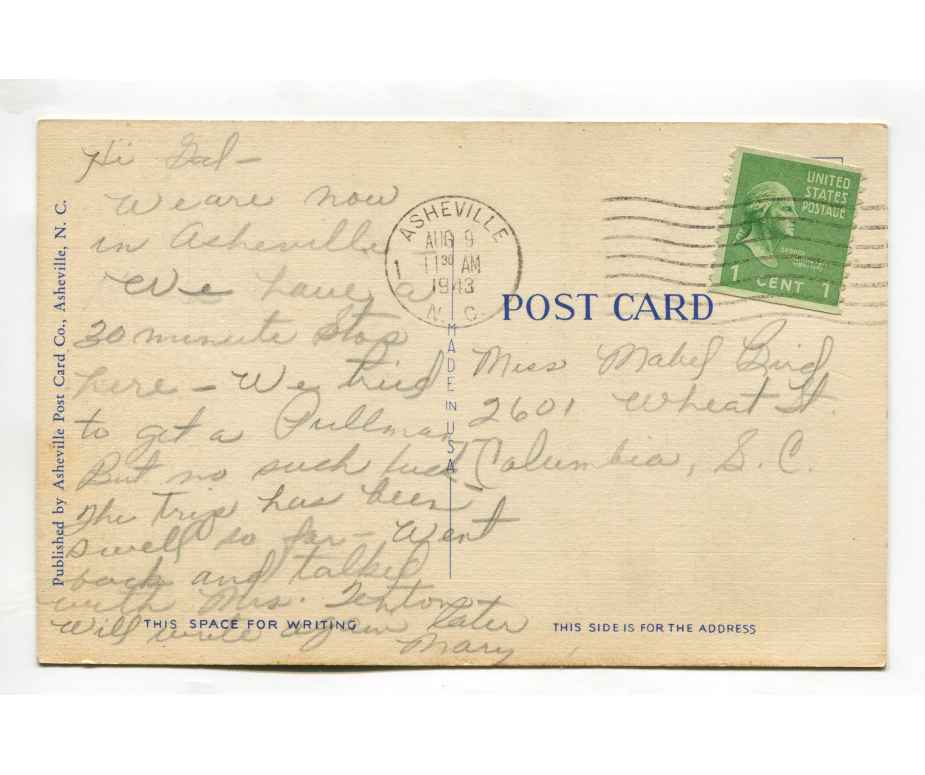 Hi Gal -
We are now
in Asheville
We have a
30 minute stop
here - We tried
to get a Pullman
But no such luck
The Trip has been
swell so far - Went
back and talked
with Mrs.
Will write again later
Mary
THIS SPACE FOR WRITING
Published by Asheville Post Card Co., Asheville, N. C.
MADE IN USA
ASHEVILLE
AUG 9
11 30 AM
1943
N. C.
1
UNITED
STATES
POSTAGE
1 CENT 1
POST CARD
Miss Mabel Bird
2601 Wheat St.
Columbia, S. C.
THIS SIDE IS FOR THE ADDRESS